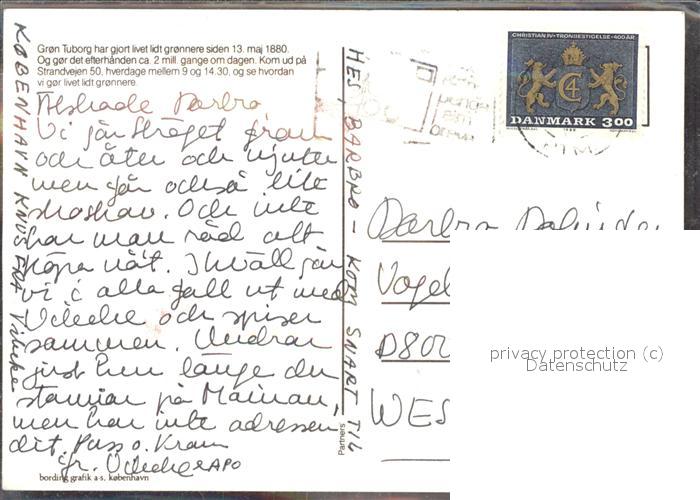 Grøn Tuborg har gjort livet lidt grønnere siden 13. maj 1880.
Og gør det efterhånden ca. 2 mill. gange om dagen. Kom ud på
Strandvejen 50, hverdage mellem 9 og 14.30, og se hvordan
vi gør livet lidt grønnere.
Älskade Barbro
Vi går Strøget fram
och åter och njuter
men går också lite
. Och inte
har man råd att
köpa nåt. Ikväll går
vi i alla fall ut med
Vibeke och spiser
sammen. Undrar
just hur länge du
stannar på Mainau,
men har inte adressen
dit. Puss o. Kram
fr. Vibeke & APO
bording grafik a·s, københavn
KØBENHAVN KNUS FRA Vibeke
HEJ, BARBRO - KOM SNART TIL
Partners
CHRISTIAN IV · TRONBESTIGELSE · 400 ÅR
C4
DANMARK 300
Barbro
Vogel
D800
WES
privacy protection (c)
Datenschutz